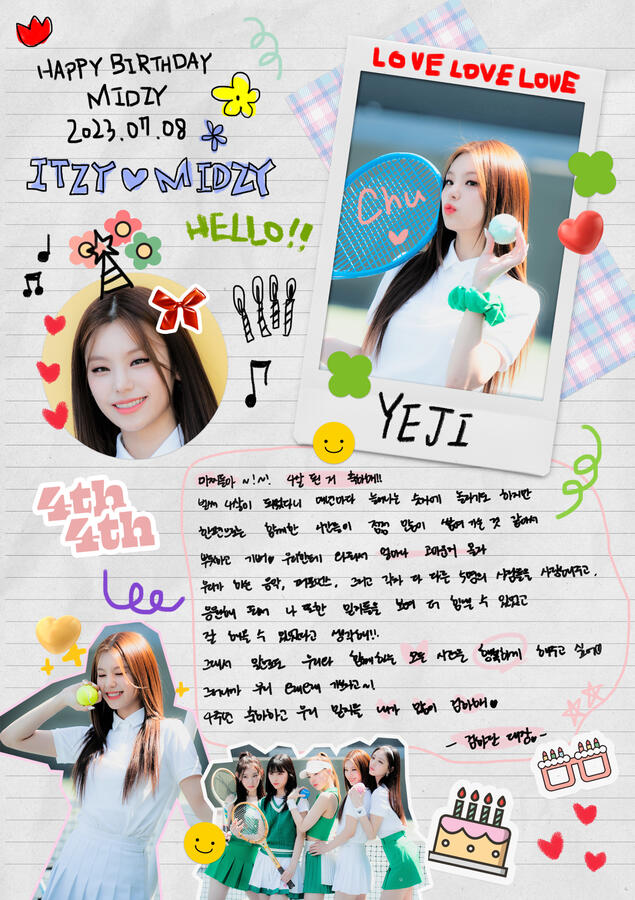 HAPPY BIRTHDAY
MIDZY
2023.07.08
ITZY MIDZY
HELLO!!
LOVE LOVE LOVE
Chu
YEJI
4th
4th
믿지들아 ~!~! 4살 된 거 축하해!!
벌써 4살이 되었다니 매년마다 늘어나는 숫자에 놀랍기도 하지만
한편으로는 함께한 시간들이 점점 많이 쌓여 가는 것 같아서
뿌듯하고 기뻐 우리한테 와줘서 얼마나 고마운지 몰라
우리가 하는 음악, 퍼포먼스, 그리고 각자 다 다른 5명의 사람들을 사랑해주고,
응원해 줘서 나 또한 믿지들을 보며 더 힘낼 수 있었고
잘 해낼 수 있었다고 생각해!!
그래서 앞으로도 우리와 함께하는 모든 시간을 행복하게 해주고 싶어
그러니까 우리 오래오래 가자고~!
4주년 축하하고 우리 믿지들 내가 많이 감사해
- 감사한 대장 -